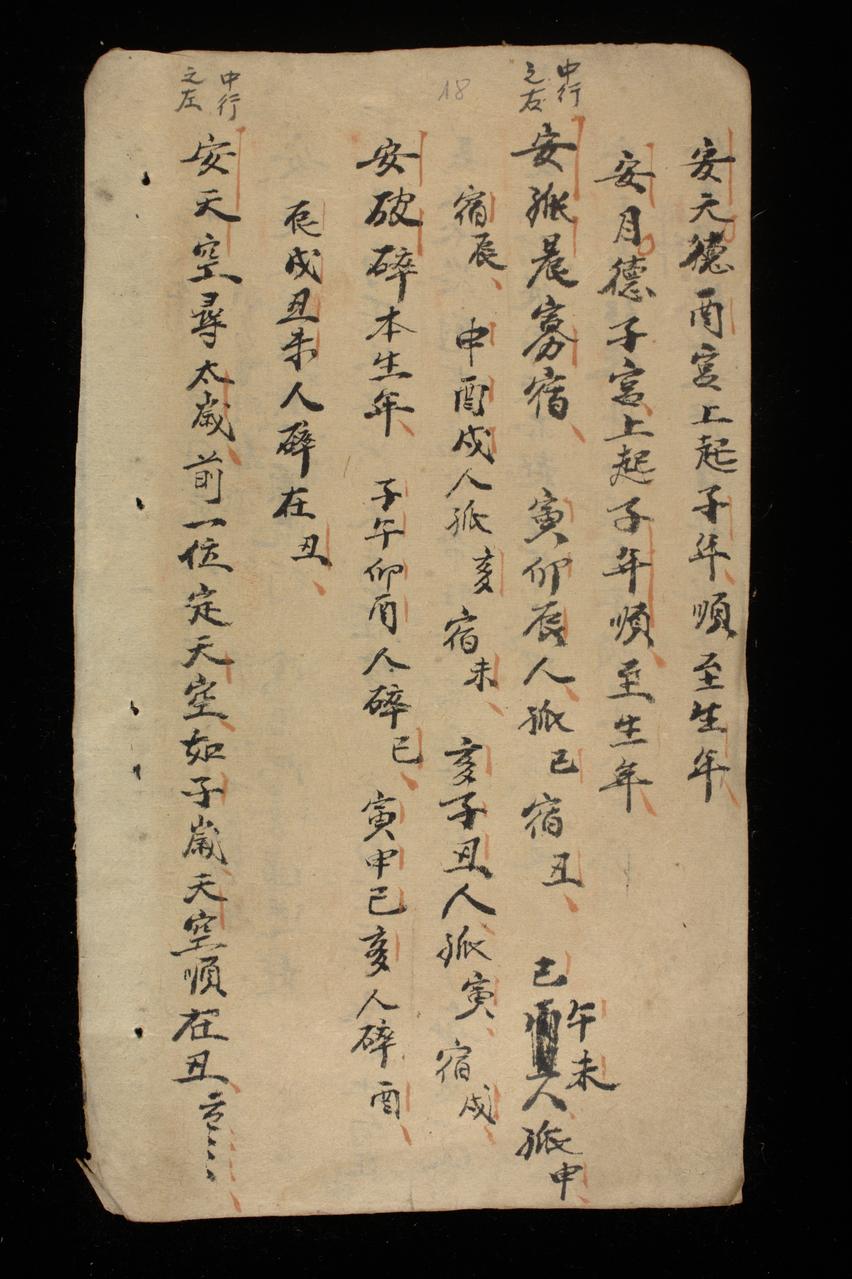 安天德酉宮上起子年順至生年
安月德子宮上起子年順至生年
中行
之右
安孤辰寡宿 寅卯辰人孤巳宿丑 巳午未人孤申
宿辰 申酉戌人孤亥宿未 亥子丑人孤寅宿戌
18
安破碎本生年 子午卯酉人碎巳 寅申巳亥人碎酉
辰戌丑未人碎在丑
中行
之左
安天空尋太歲前一位定天空如子歲天空順在丑